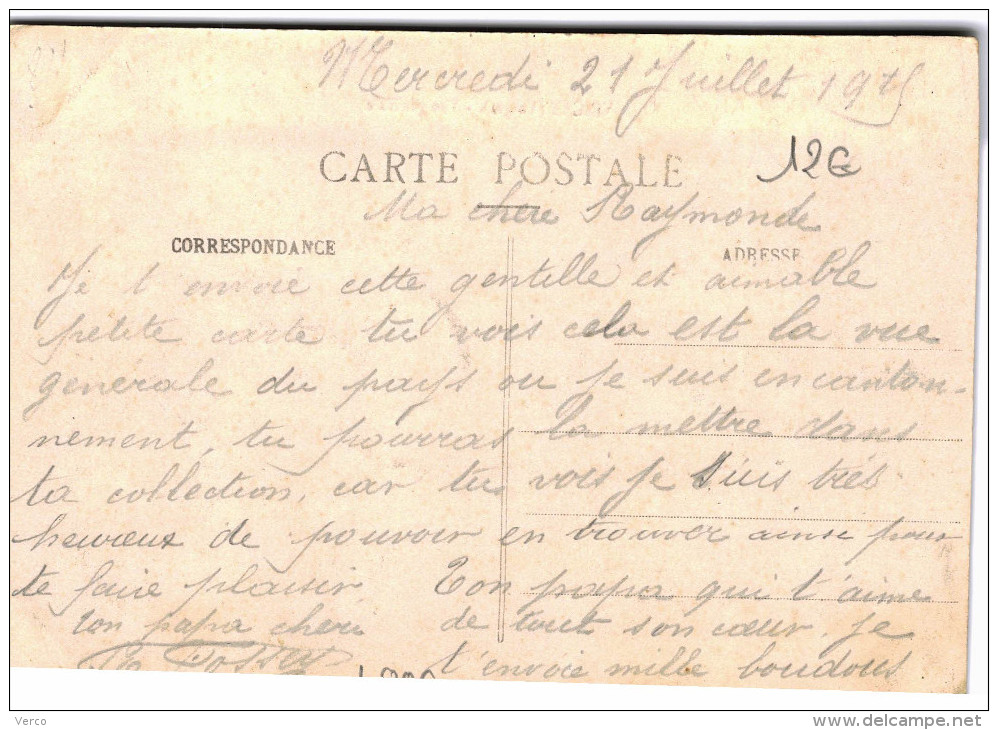 Mercredi 21 Juillet 1915
CARTE POSTALE
12€
Ma chere Raymonde
CORRESPONDANCE
ADRESSE
Je t envoie cette gentille et aimable
petite carte tu vois cela est la vue
generale du pays ou je suis en canton-
nement, tu pourras la mettre dans
ta collection, car tu vois je suis très
heureux de pouvoir en trouver ainsi pour
te faire plaisir.
Ton papa qui t'aime
de tout son cœur. je
t'envoie mille boudous
ton papa cheri
Verco
delcampe.net